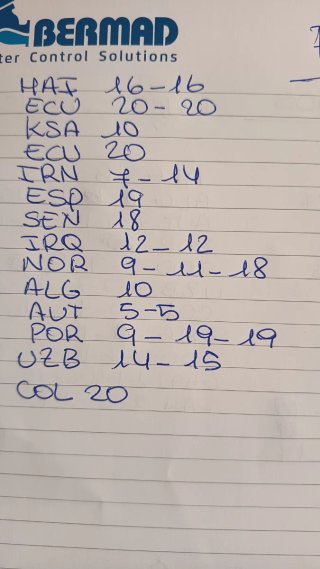 BERMAD
ter Control Solutions
HAI 16-16
ECU 20-20
KSA 10
ECU 20
IRN 7-14
ESP 19
SEN 18
IRQ 12-12
NOR 9-11-18
ALG 10
AUT 5-5
POR 9-19-19
UZB 14-15
COL 20